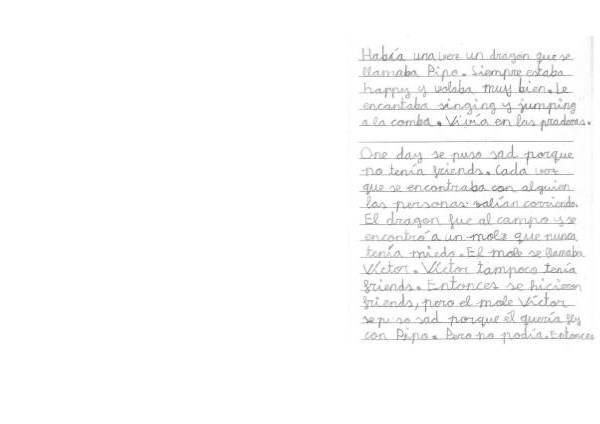 Había una vez un dragón que se
llamaba Pipo. Siempre estaba
happy y volaba muy bien. Le
encantaba singing y jumping
a la comba. Vivía en las praderas.
One day se puso sad porque
no tenía friends. Cada vez
que se encontraba con alguien
las personas salían corriendo.
El dragon fue al campo y se
encontró a un mole que nunca
tenía miedo. El mole se llamaba
Víctor. Víctor tampoco tenía
friends. Entonces se hicieron
friends, pero el mole Víctor
se puso sad porque él quería fly
con Pipo. Pero no podía. Entonces